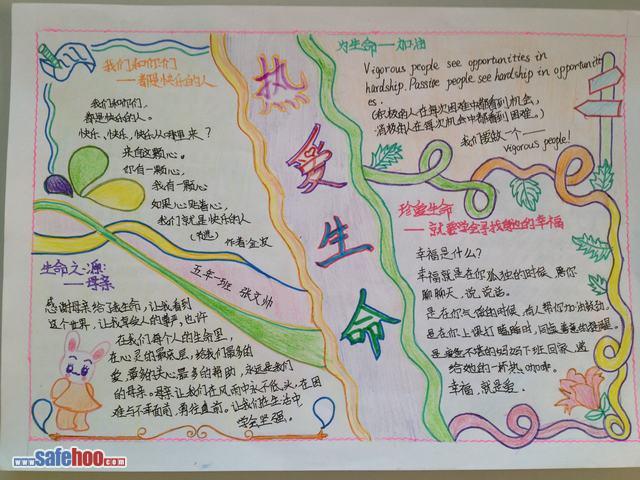 热爱生命
我们和你们
——都是快乐的人
我们和你们,
都是快乐的人。
快乐、快乐、快乐从哪里来?
来自这颗心。
你有一颗心,
我有一颗心
如果心贴着心,
我们就是快乐的人
(节选)
作者:金波
五年一班 张文帅
生命之源
——母亲
感谢母亲给了我生命,让我看到
这个世界,让我享受人的尊严,也许
在我们每个人的生命里,
在心灵的最底层,给我们最多的
爱,最多的关心最多的帮助,永远是我们
的母亲。母亲让我们在风雨中永不低头,在困
难与不幸面前,勇往直前。让我们在生活中
学会坚强。
为生命——加油
Vigorous people see opportunities in
hardship. Passive people see hardship in opportuniti
es.
(积极的人在每次困难中都看到机会,
消极的人在每次机会中都看到困难。)
我们要做一个——
vigorous people!
珍重生命
——就要学会寻找它的幸福
幸福是什么?
幸福就是在你孤独的时候,陪你
聊聊天,说说话。
是在你气馁的时候,有人帮你加油鼓劲。
是在你上课打瞌睡时,同桌善意的提醒。
是疲惫不堪的妈妈下班回家,递
给她的一杯热咖啡。
幸福,就是爱。
www.safehoo.com